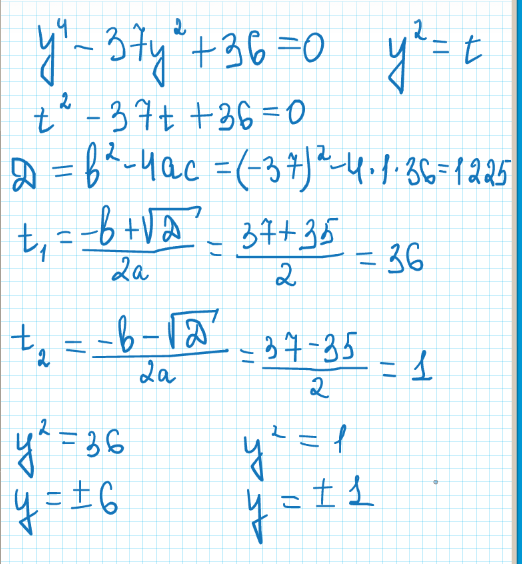 y⁴ − 37y² + 36 = 0   y² = t
t² − 37t + 36 = 0
D = b² − 4ac = (−37)² − 4·1·36 = 1225
t₁ = (−b + √D)/(2a) = (37 + 35)/2 = 36
t₂ = (−b − √D)/(2a) = (37 − 35)/2 = 1
y² = 36   y² = 1
y = ±6   y = ±1